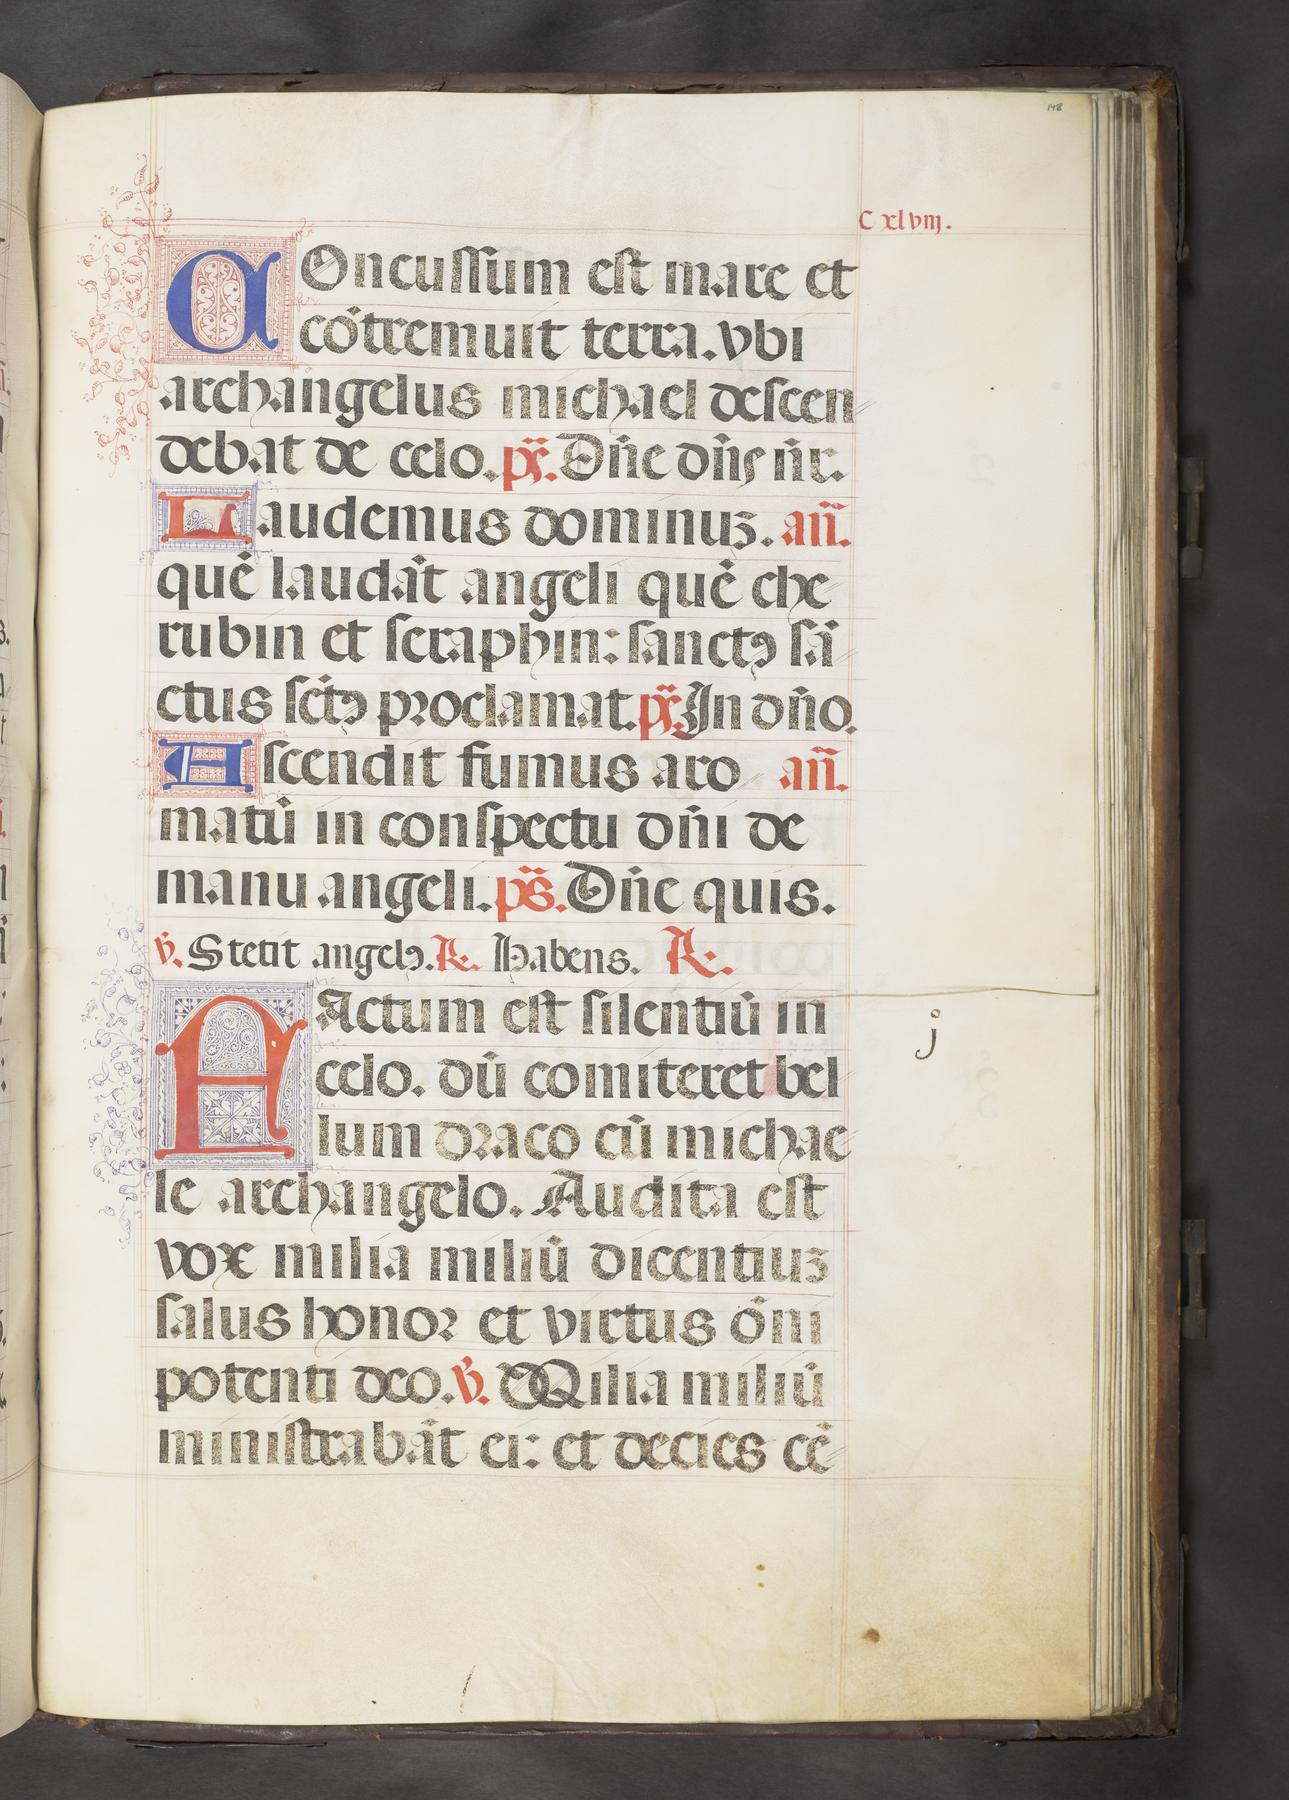 148
C xlviij.
COncussum est mare et
cōtremuit terra. vbi
archangelus michael descen
debat de celo. ps̄. Dn̄e dn̄s nr̄.
Laudemus dominuꝫ. an̄.
quē laudāt angeli quē che
rubin et seraphin: sanctꝰ sā
ctus sc̄tꝰ proclamat. ps̄. In dn̄o.
Ascendit fumus aro an̄.
matū in conspectu dn̄i de
manu angeli. ps̄. Dn̄e quis.
v̄. Stetit angelꝰ. R. Habens. R.
FActum est silentiū in
celo. dū comiteret bel
lum draco cū michae
le archangelo. Audita est
vox milia miliū dicentiuꝫ
salus honor et virtus ōni
potenti deo. v̄. Milia miliū
ministrabāt ei: et decies cē
j